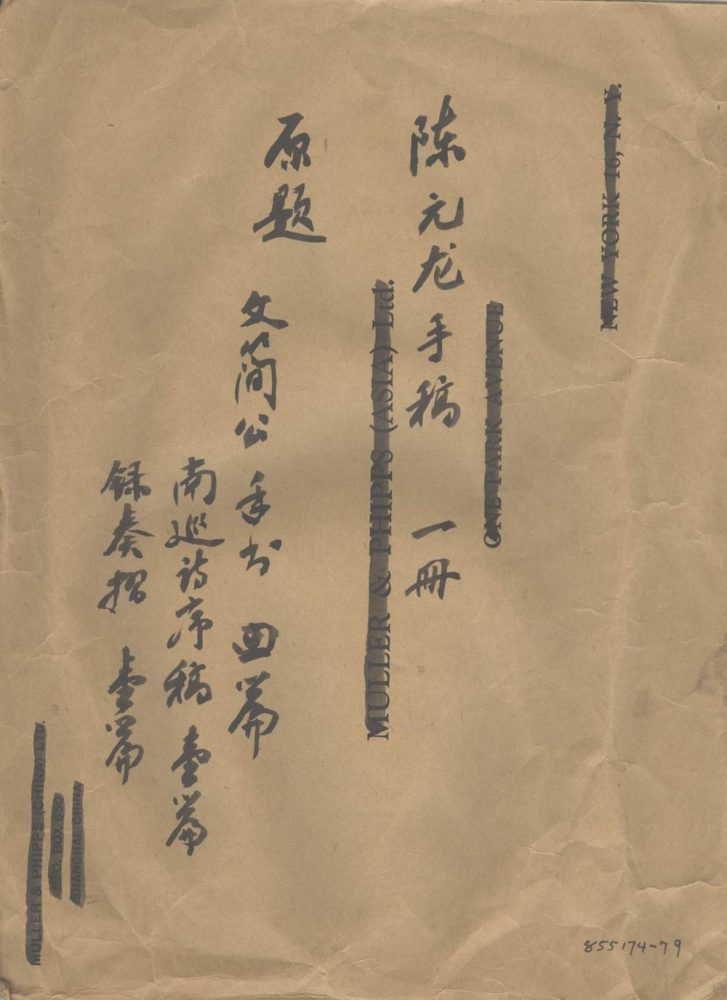 NEW YORK 16, N. Y.
ONE PARK AVENUE
MULLER & PHIPPS (ASIA) Ltd.
陈元龙手稿 一冊
原题 文简公手书 四篇
南巡诗序稿 壹篇
録奏摺 壹篇
MULLER & PHIPPS (CHINA) LTD.
P.O. BOX 650
SHANGHAI, CHINA
855174~79